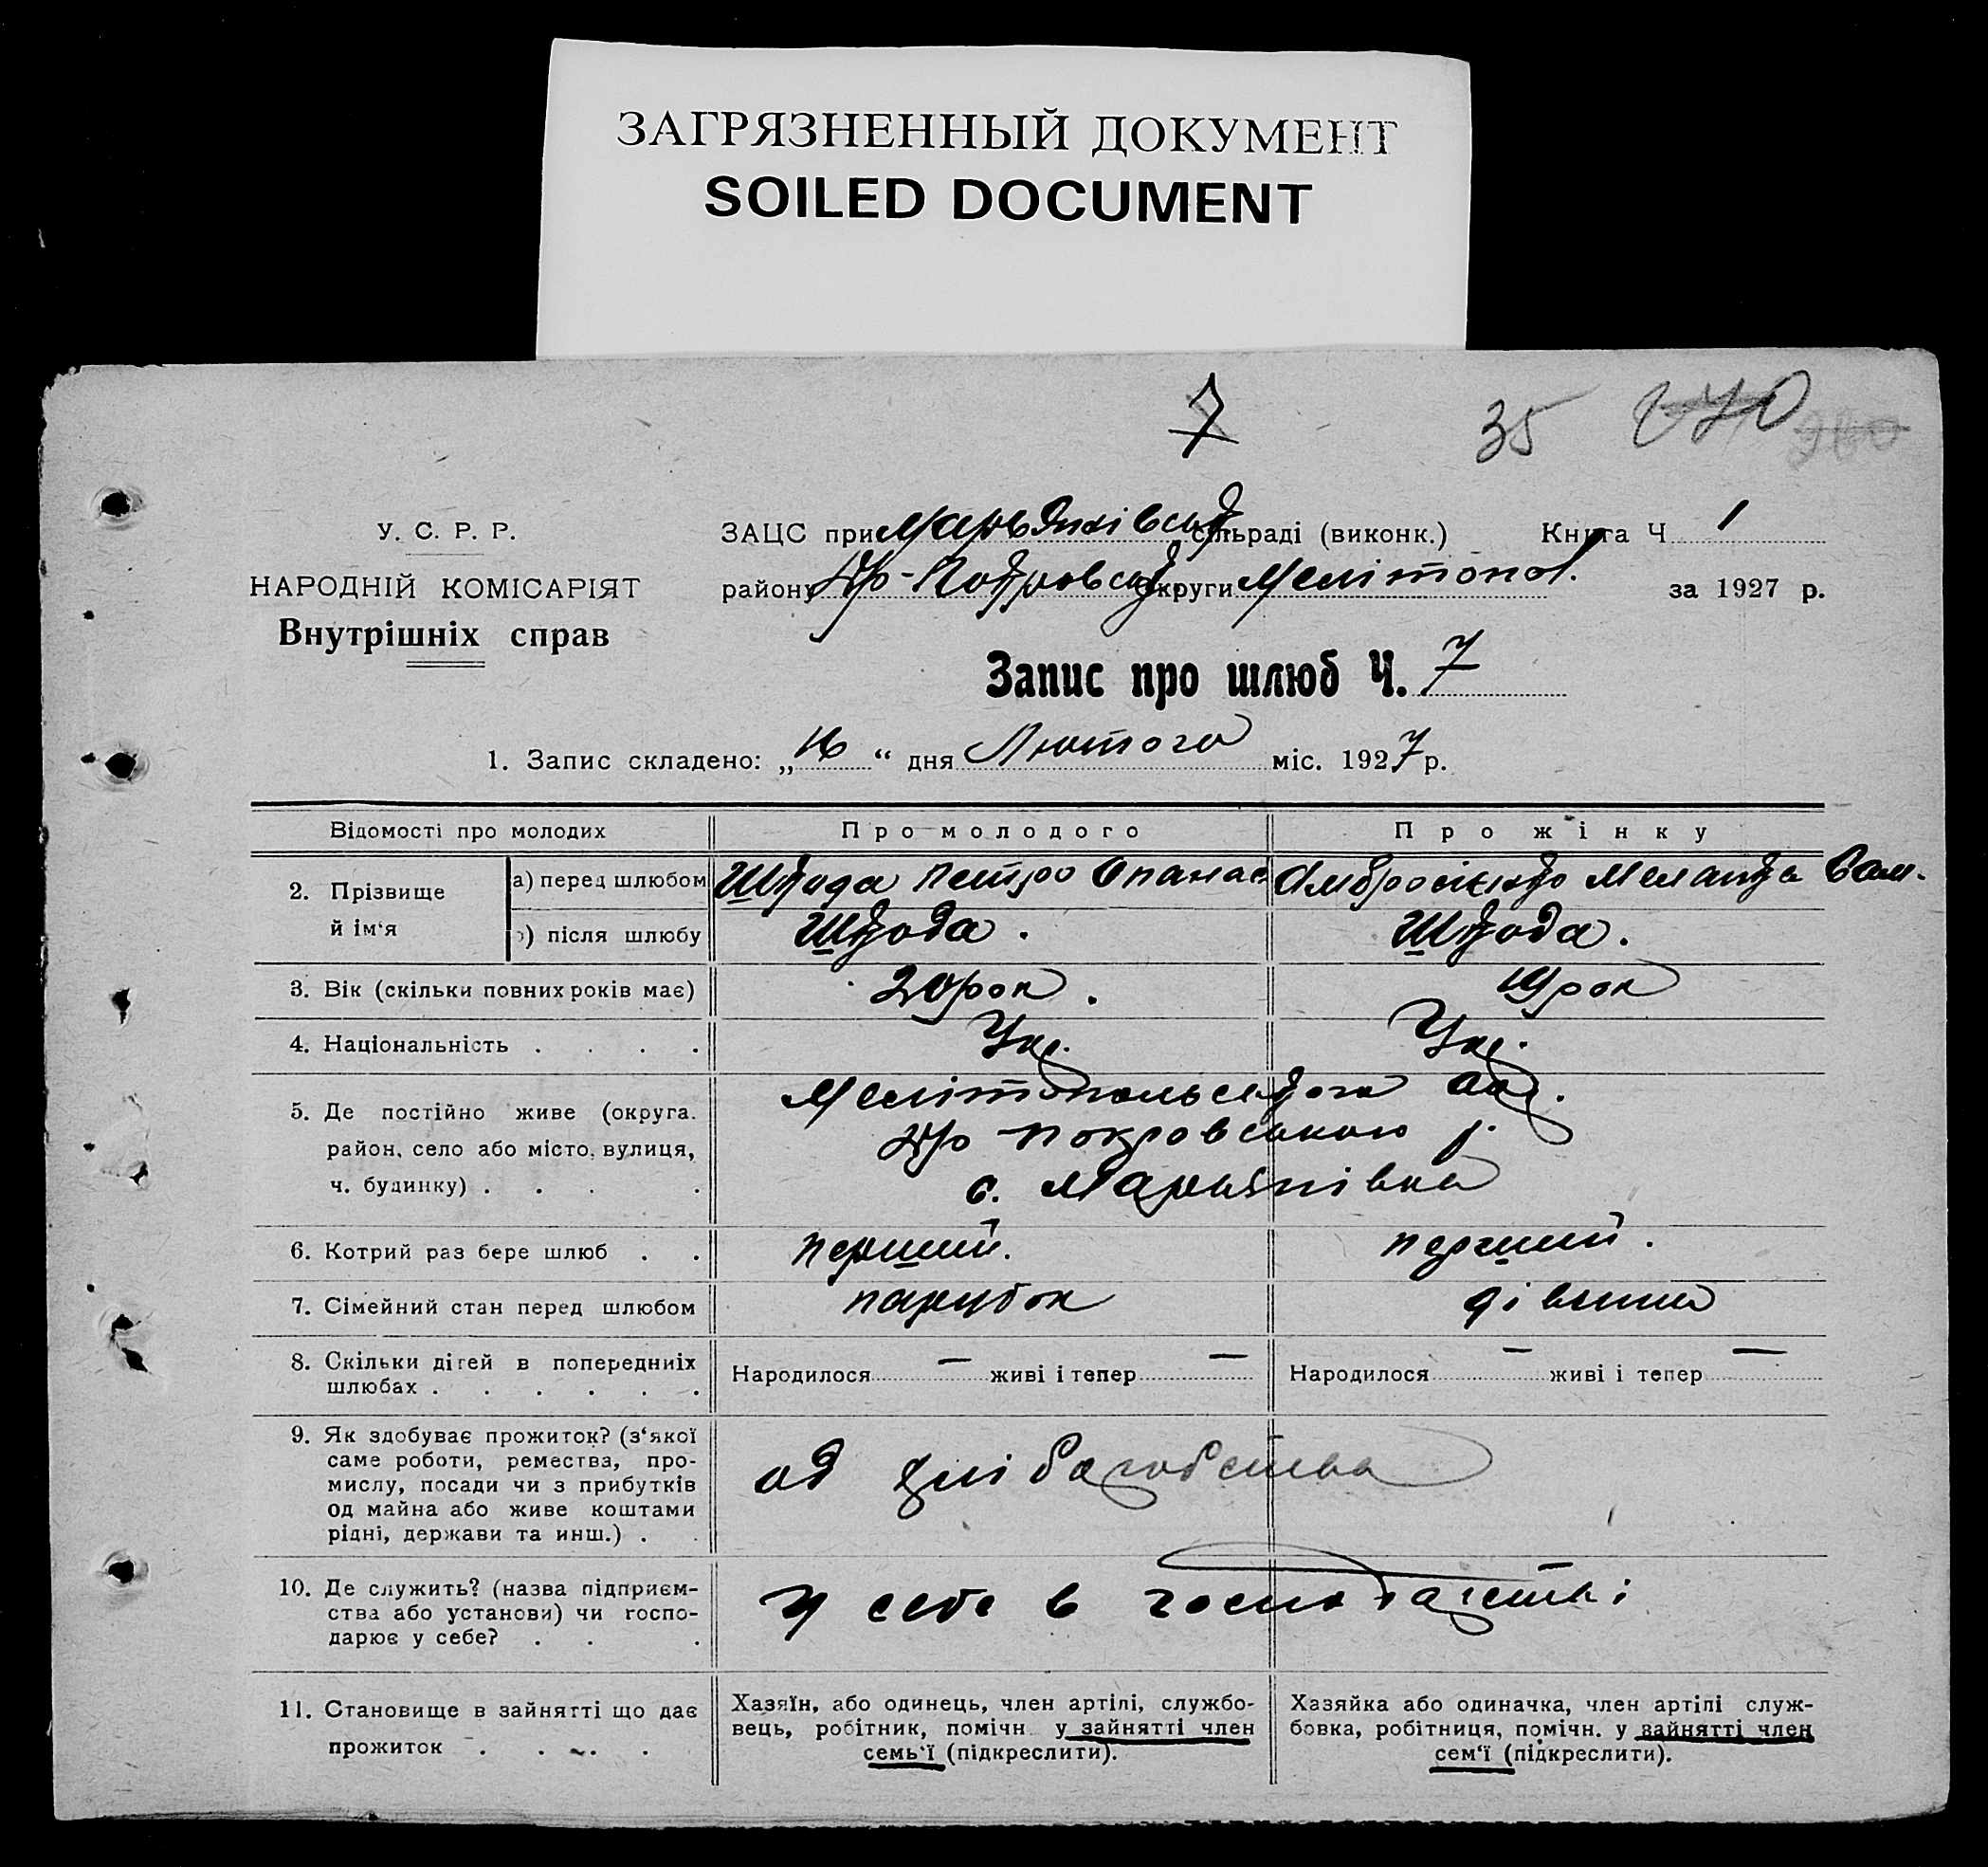 ЗАГРЯЗНЕННЫЙ ДОКУМЕНТ
SOILED DOCUMENT
7 35
У. С. Р. Р.
НАРОДНІЙ КОМІСАРІЯТ
Внутрішніх справ
ЗАЦС при Марьянівськ сільраді (виконк.) Книга Ч 1
району Др-Покровськ округи Мелітопол. за 1927 р.
Запис про шлюб Ч. 7
1. Запис складено: „16“ дня Лютого міс. 1927 р.
Відомості про молодих Про молодого Про жінку
2. Прізвище й ім‘я
а) перед шлюбом Шкода Петро Опанас Амбросієнко Меланка Сам.
б) після шлюбу Шкода. Шкода.
3. Вік (скільки повних років має) 20 рок. 19 рок
4. Національність . . . . Укр. Укр.
5. Де постійно живе (округа. Мелітопольського ок.
район, село або місто, вулиця, Др Покровського р.
ч. будинку) . . . . с. Марьянівка
6. Котрий раз бере шлюб . . перший. перший.
7. Сімейний стан перед шлюбом парубок дівчина
8. Скільки дітей в попередниіх
шлюбах . . . . . .
Народилося — живі і тепер — Народилося — живі і тепер —
9. Як здобуває прожиток? (з‘якої
саме роботи, ремества, про-
мислу, посади чи з прибутків
од майна або живе коштами
рідні, держави та инш.) . .
од хліборобства
10. Де служить? (назва підприєм-
ства або установи) чи госпо-
дарює у себе? . . .
У себе в господарстві
11. Становище в зайнятті що дає
прожиток . . . .
Хазяїн, або одинець, член артілі, службо-
вець, робітник, помічн. у зайнятті член
семь‘ї (підкреслити).
Хазяйка або одиначка, член артілі служ-
бовка, робітниця, помічн. у зайнятті член
сем‘ї (підкреслити).